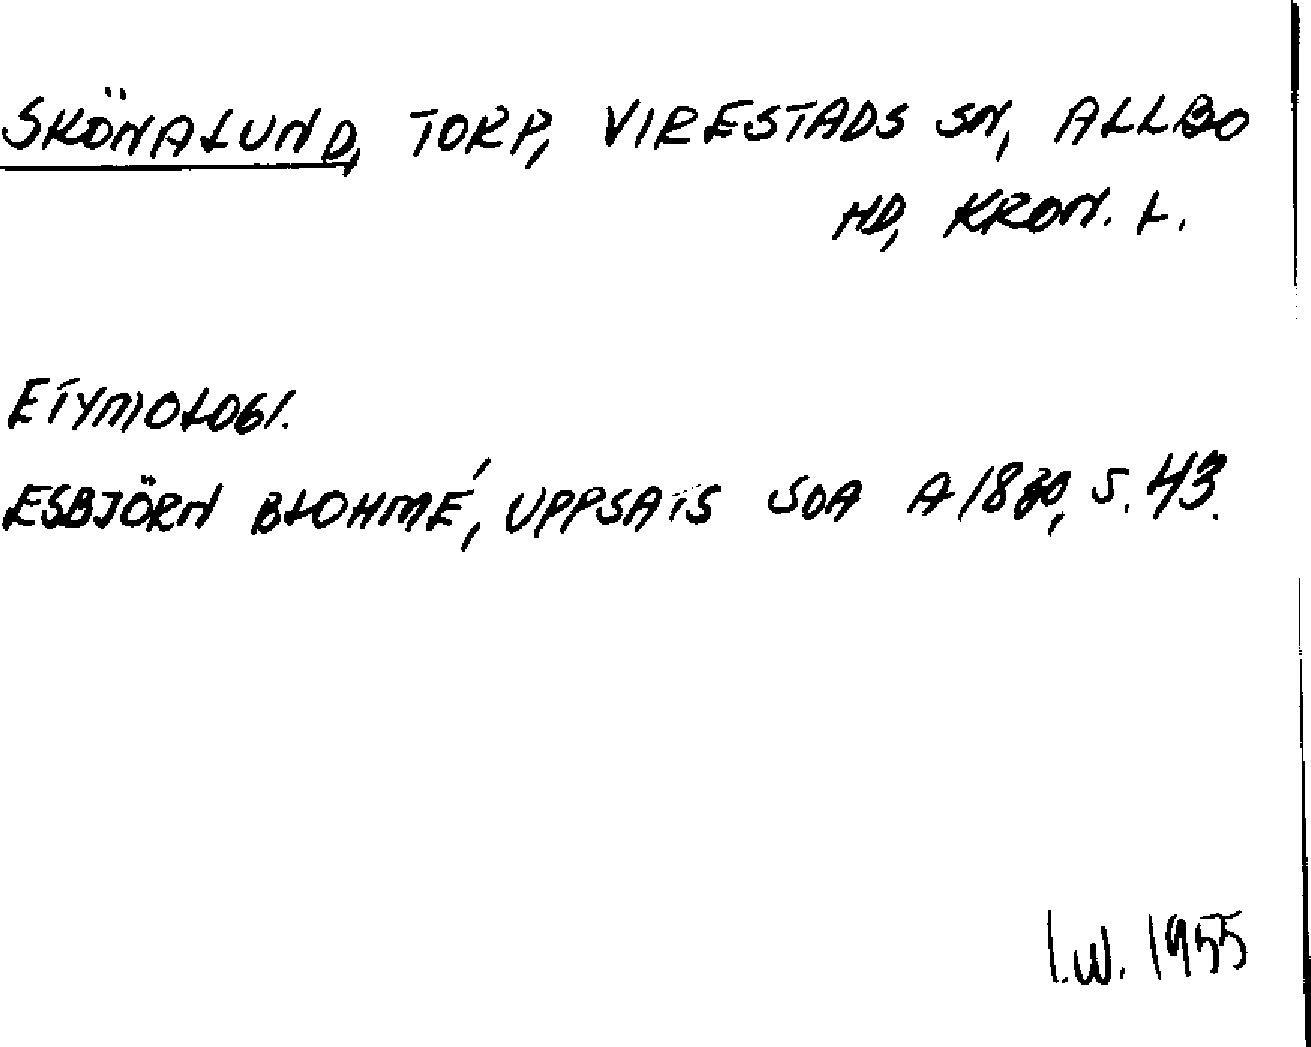 SKÖNALUND, TORP, VIRESTADS SN, ALLBO
HD, KRON. L.
ETYMOLOGI.
ESBJÖRN BLOHMÉ, UPPSATS SOA S. 43.
I.W. 1955